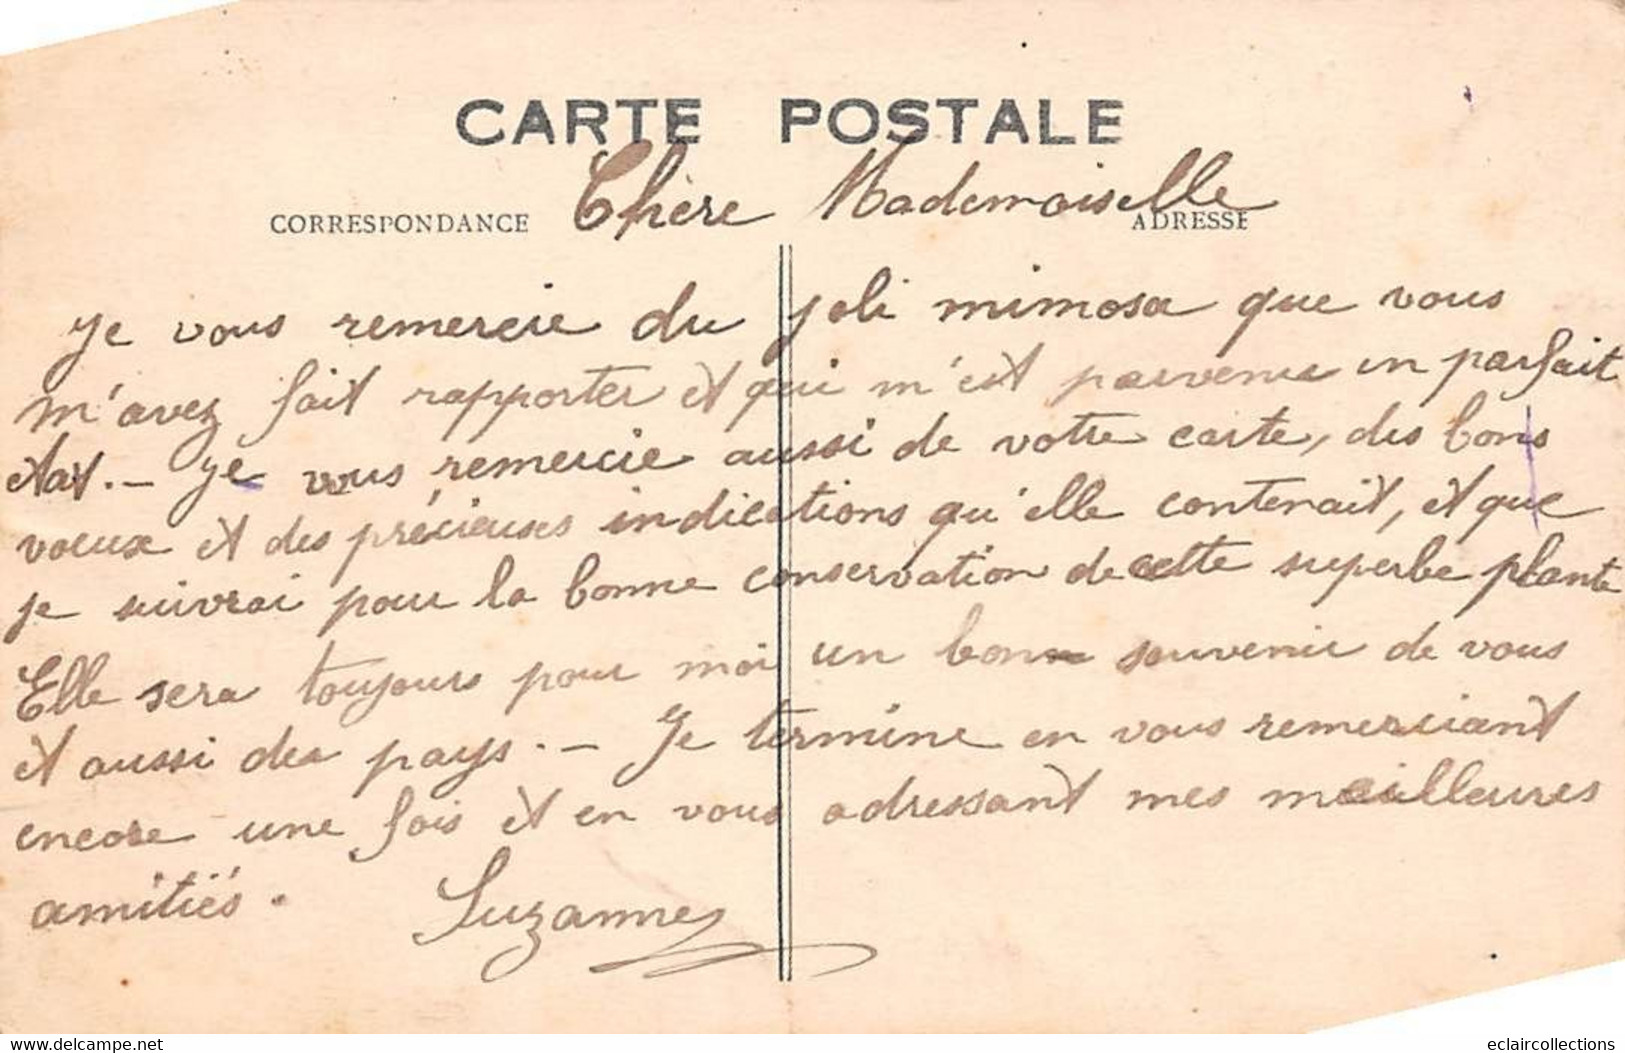 CARTE POSTALE
CORRESPONDANCE
ADRESSE
Chère Mademoiselle
Je vous remercie du joli mimosa que vous
m'avez fait rapporter et qui m'est parvenu en parfait
état. — Je vous remercie aussi de votre carte, des bons
voeux et des précieuses indications qu'elle contenait, et que
je suivrai pour la bonne conservation de cette superbe plante
Elle sera toujours pour moi un bon souvenir de vous
et aussi des pays. — Je termine en vous remerciant
encore une fois et en vous adressant mes meilleures
amitiés.
Suzanne
delcampe.net
eclaircollections